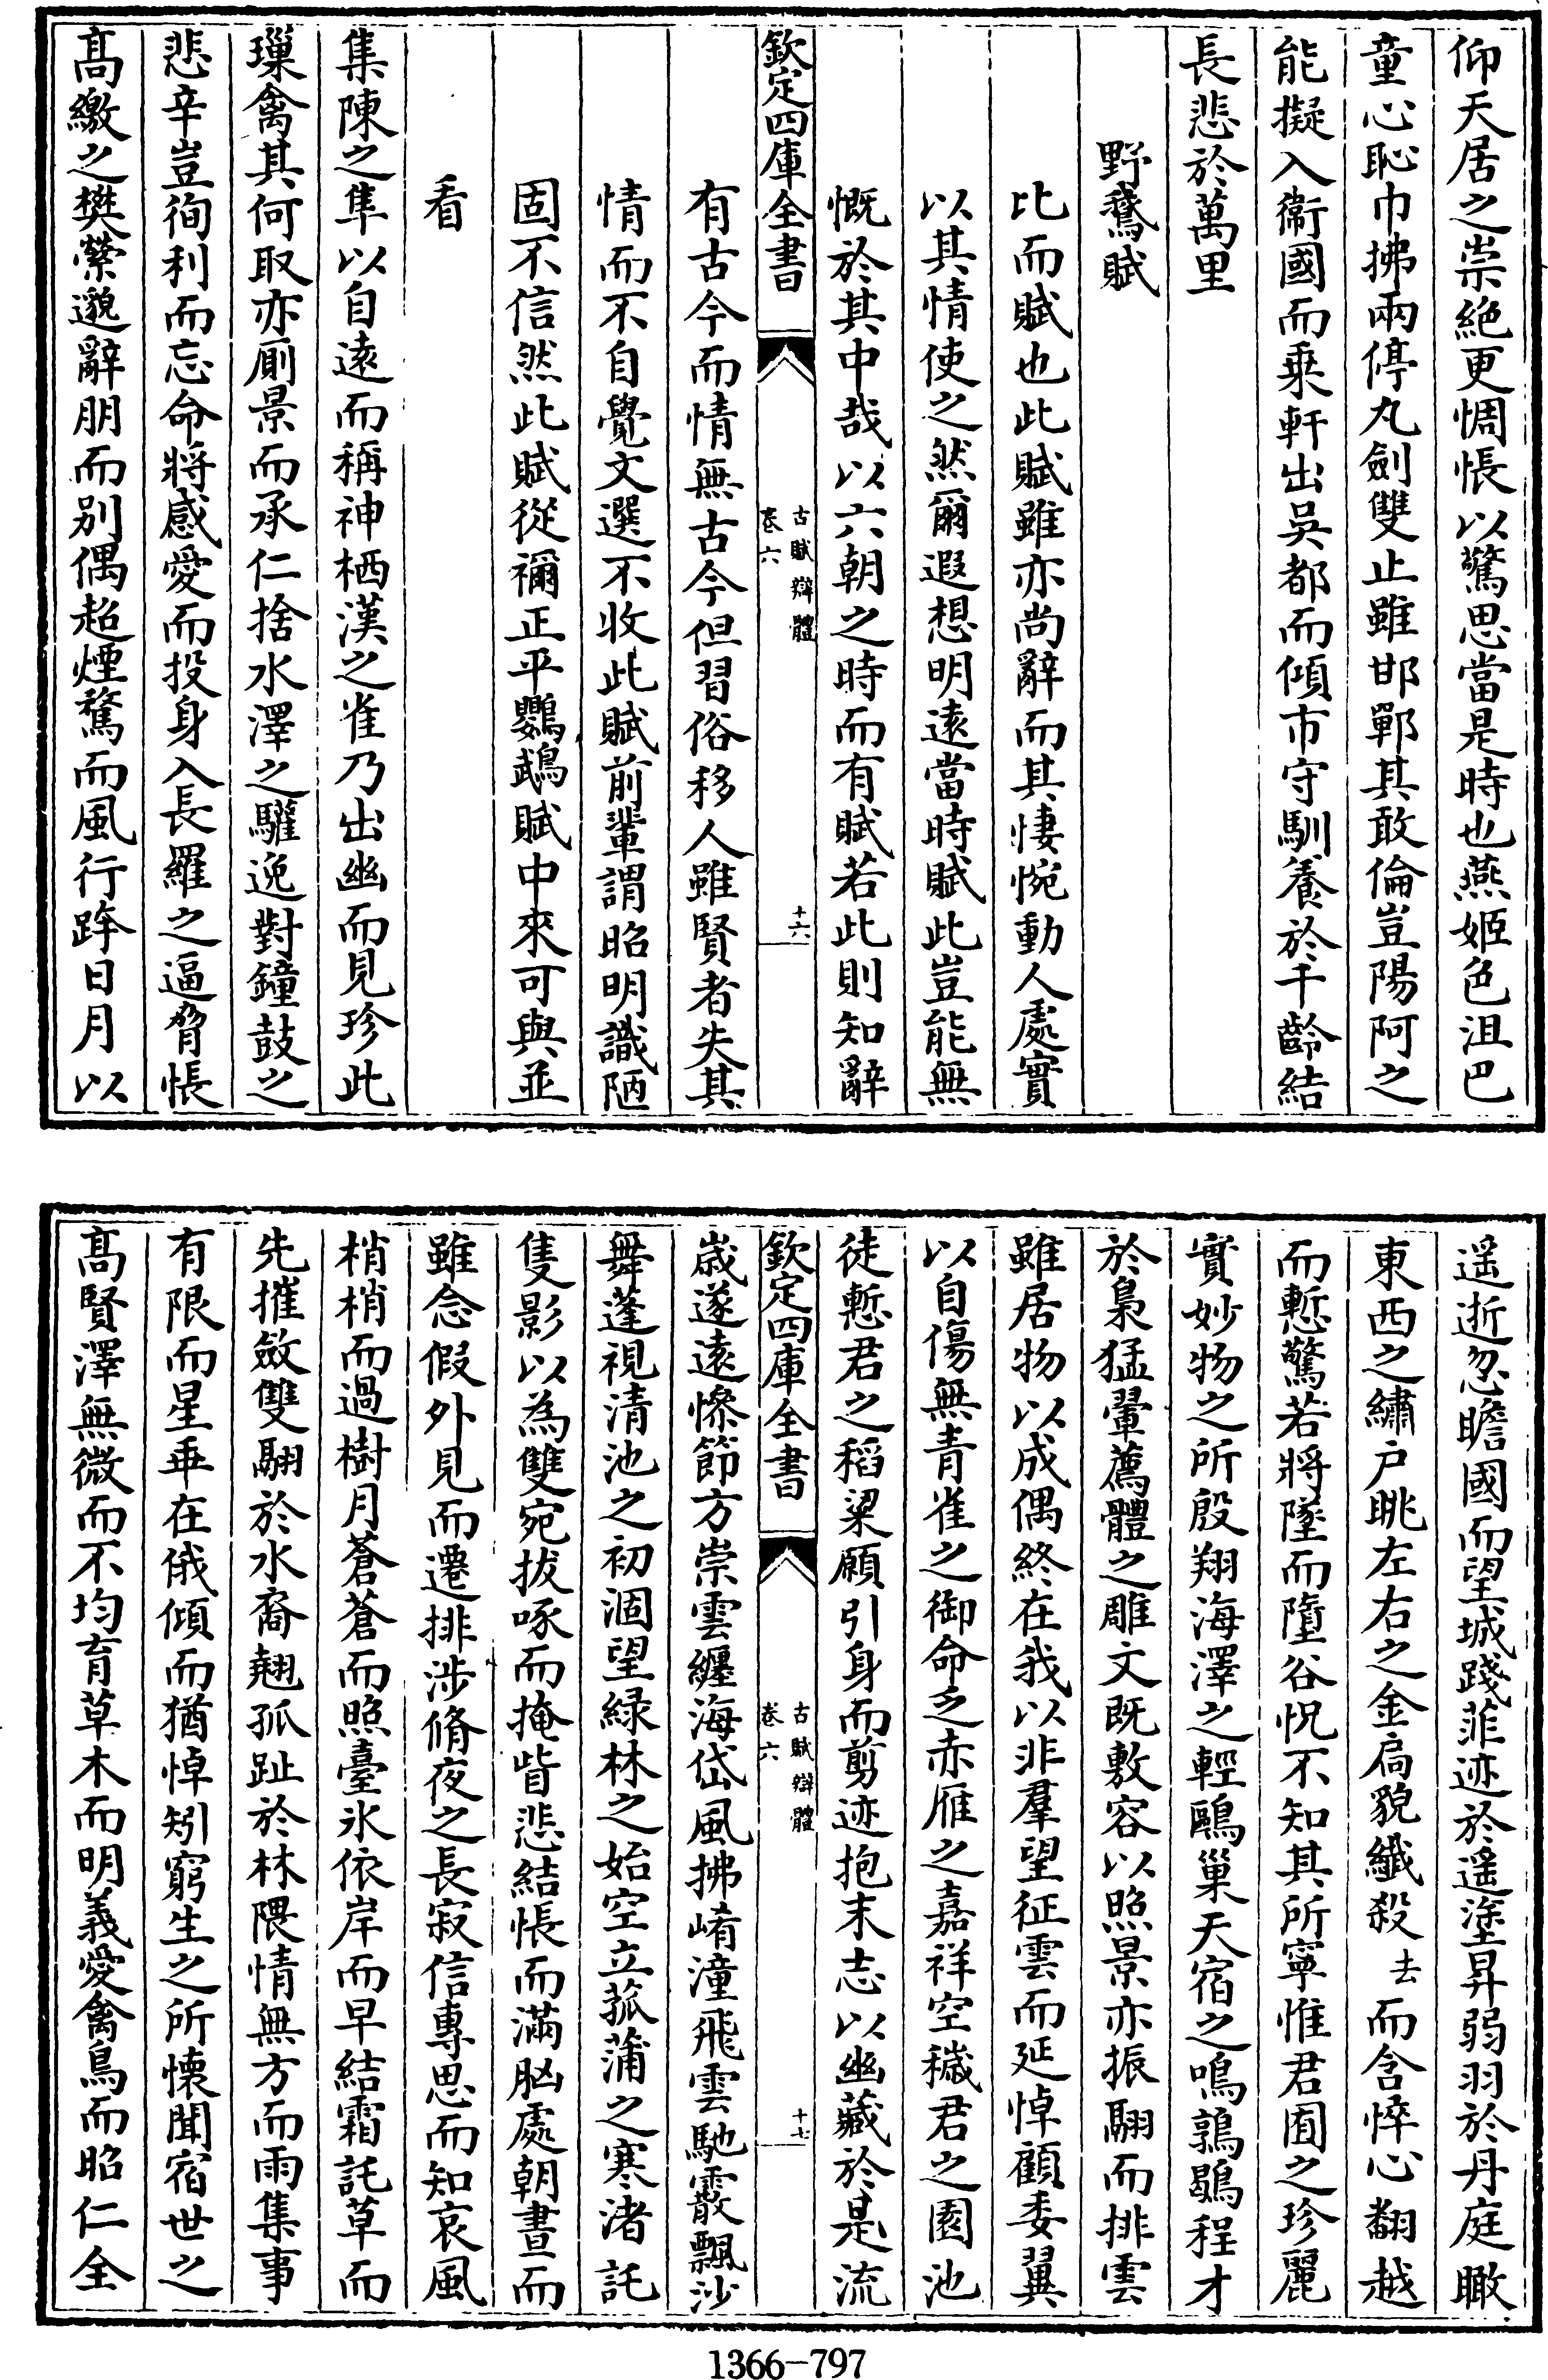 仰天居之崇絶更惆悵以驚思當是時也燕姬色沮巴
童心恥巾拂兩停丸劍雙止雖邯鄲其敢倫豈陽阿之
能擬入衞國而乗軒出吳都而傾市守馴養於千齡結
長悲於萬里
野鵞賦
比而賦也此賦雖亦尚辭而其悽惋動人處實
以其情使之然爾遐想明遠當時賦此豈能無
慨於其中哉以六朝之時而有賦若此則知辭
欽定四庫全書
古賦辯體
卷六
十六
有古今而情無古今但習俗移人雖賢者失其
情而不自覺文選不收此賦前輩謂昭明識陋
固不信然此賦從禰正平鸚鵡賦中來可與並
看
集陳之隼以自遠而稱神栖漢之雀乃出幽而見珍此
璅禽其何取亦厠景而承仁捨水澤之驩逸對鐘鼓之
悲辛豈徇利而忘命將感愛而投身入長羅之逼脅悵
髙繳之樊縈邈辭朋而别偶超煙騖而風行跨日月以
遥逝忽瞻國而望城踐菲迹於遥塗昇弱羽於丹庭瞰
東西之繡户眺左右之金扃貌纎殺去而含悴心翻越
而慙驚若將墜而墮谷怳不知其所寧惟君囿之珍麗
實妙物之所殷翔海澤之輕鷗巢天宿之鳴鶉鶡程才
於梟猛翬薦體之雕文既敷容以照景亦振翮而排雲
雖居物以成偶終在我以非羣望征雲而延悼顧委翼
以自傷無青雀之御命乏赤雁之嘉祥空穢君之園池
徒慙君之稻粱願引身而剪迹抱末志以幽藏於是流
欽定四庫全書
古賦辯體
卷六
十七
嵗遂遠慘節方崇雲纒海岱風拂崤潼飛雲馳霰飄沙
舞蓬視清池之初涸望緑林之始空立菰蒲之寒渚託
隻影以為雙宛拔啄而掩眥悲結悵而滿胸處朝晝而
雖念假外見而遷排涉脩夜之長寂信專思而知哀風
梢梢而過樹月蒼蒼而照臺氷依岸而早結霜託草而
先摧斂雙翮於水裔翹孤趾於林隈情無方而雨集事
有限而星乖在俄傾而猶悼矧窮生之所懐聞宿世之
髙賢澤無微而不均育草木而明義愛禽鳥而昭仁全
1366-797